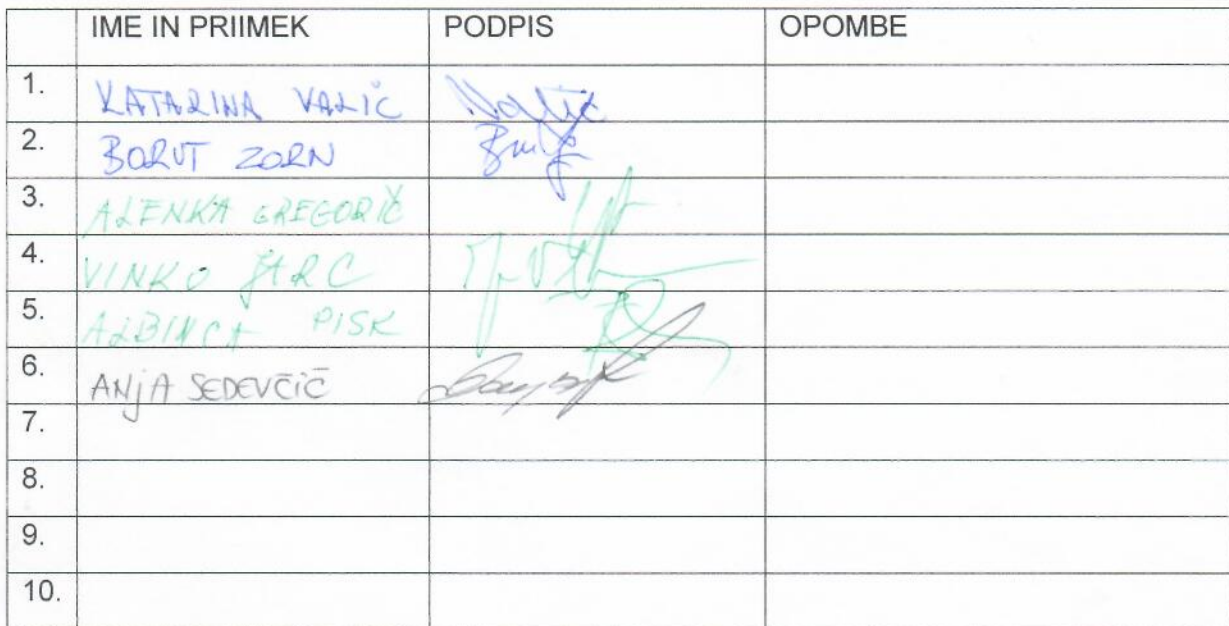 IME IN PRIIMEK PODPIS OPOMBE
1. KATARINA VALIČ
2. BORUT ZORN
3. ALENKA GREGORIČ
4. VINKO JARC
5. ALBINCA PISK
6. ANJA SEDEVČIČ
7.
8.
9.
10.